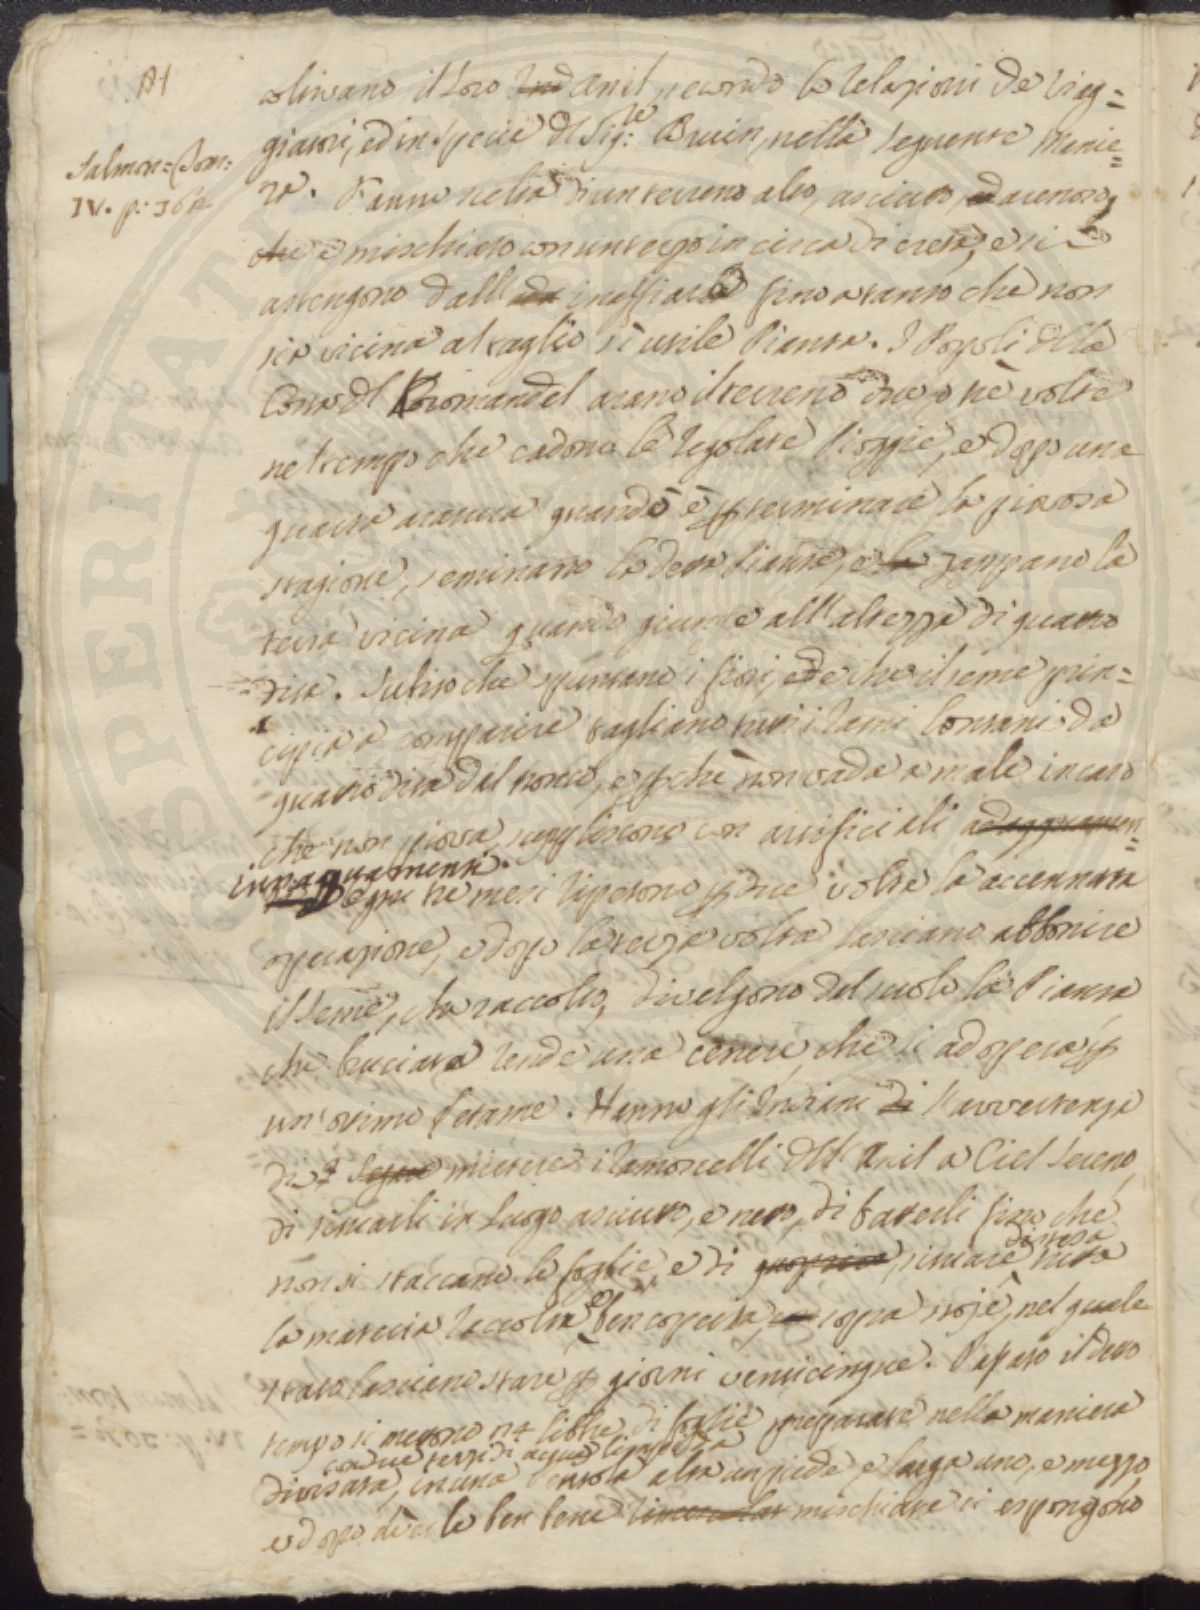 Salmon: Tom:
IV. p: 362
coltivano il loro Anil, secondo le Relazioni de Viag=
giatori, ed in specie del Sig:re Bruin, nella seguente Manie=
ra. Fanno scelta di un terreno alto, asciutto, ed arenoso,
che è mischiato con un terzo in circa di creta, e si
astengono dall' inaffiarlo fino a tanto che non
sia vicina al taglio sì utile Pianta. I Popoli della
Costa del Koromandel arano il terreno due, o tre volte
nel tempo che cadono le regolate Pioggie, e dopo una
quarta aratura quando è terminata la piovosa
stagione, seminano la detta Pianta, e la zappano la
terra vicina quando giunge all' altezza di quattro
dita. Subito che spuntano i fiori, ed e che il seme prin=
cipia a comparire tagliano tutti i Rami lontani da
quattro dita dal tronco, e perchè non vada a male in caso
che non piova, suppliscono con artificiali adacquamen=
innaquamenti.
Ogni tre mesi ripetono per due volte la accennata
operazione, e dopo la terza volta lasciano abbonire
il Seme, che raccolto, divelgono dal suolo la Pianta
che bruciata rende una cenere, che si adopera per
un' ottimo letame. Hanno gl' Indiani di l' avvertenza
di mietere i Ramoscelli dell' Anil a Ciel Sereno,
di seccarli in Luogo asciutto, e netto, di batterli fino che
non si staccano le foglie, e di situare tutta
distesa
la materia raccolta e ben coperta, sopra stoje, nel quale
stato lasciano stare per giorni venticinque. Passato il detto
tempo si mettono n:4 libbre di foglie preparate nella maniera
con due terzi di acqua limpida
divisata, in una alta un piede, e larga uno, e mezzo
e dopo averle ben bene mischiate si espongono